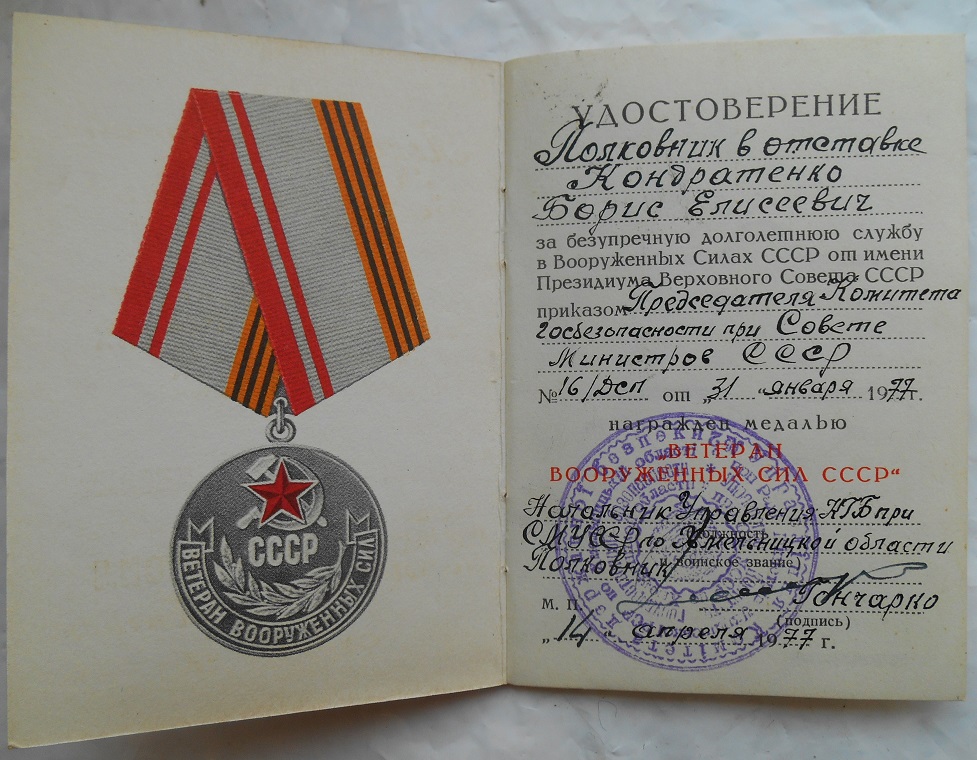 СССР
ВЕТЕРАН ВООРУЖЕННЫХ СИЛ
УДОСТОВЕРЕНИЕ
Полковник в отставке
Кондратенко
Борис Елисеевич
за безупречную долголетнюю службу
в Вооруженных Силах СССР от имени
Президиума Верховного Совета СССР
приказом Председателя Комитета
госбезопасности при Совете
Министров СССР
№ 16/Дсп от „31“ января 1977г.
награжден медалью
„ВЕТЕРАН
ВООРУЖЕННЫХ СИЛ СССР“
Начальник Управления КГБ при
СМ УССР по Хмельницкой области
(должность
Полковник и воинское звание)
М. П. Гончарко
(подпись)
„14“ апреля 1977 г.